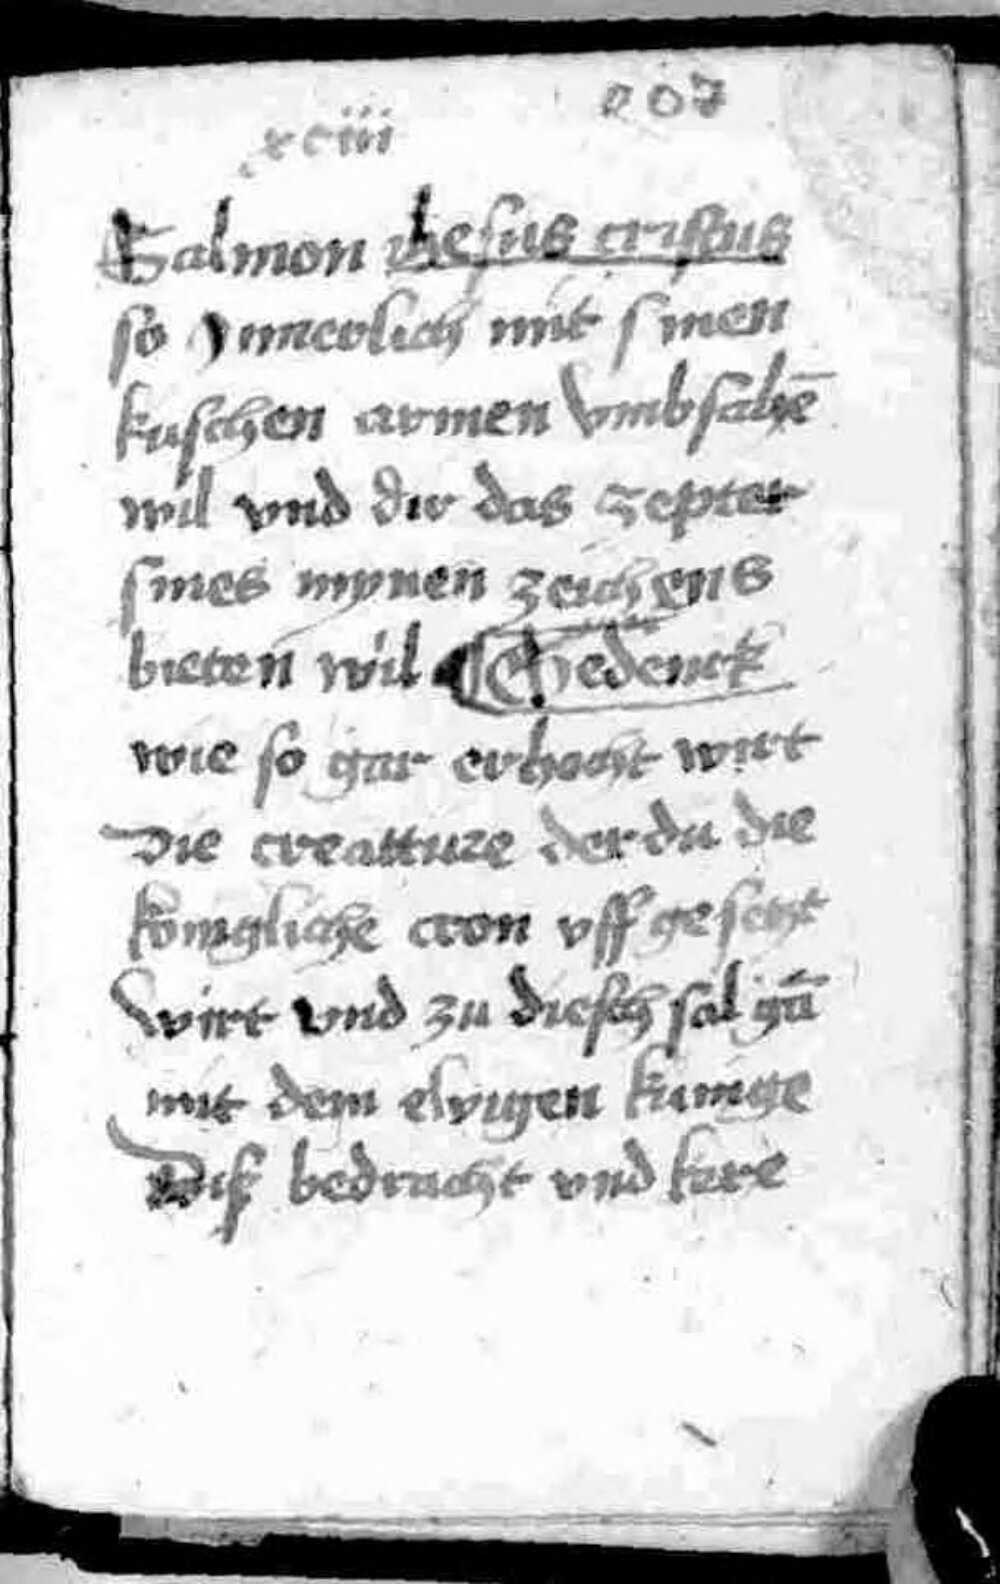 xciii 207
Salmon ihesus cristus
so Innerlich mit sinen
kuschen armen vmbfahē
wil vnd dir das zepter
sines mynen zeichens
bieten wil Gedenck
wie so gar erhocht wirt
Die creatture der du die
konigliche cron vff gesetzt
wirt vnd zu disch sal gū
mit dem ewigen kunige
Disß bedracht vnd kere